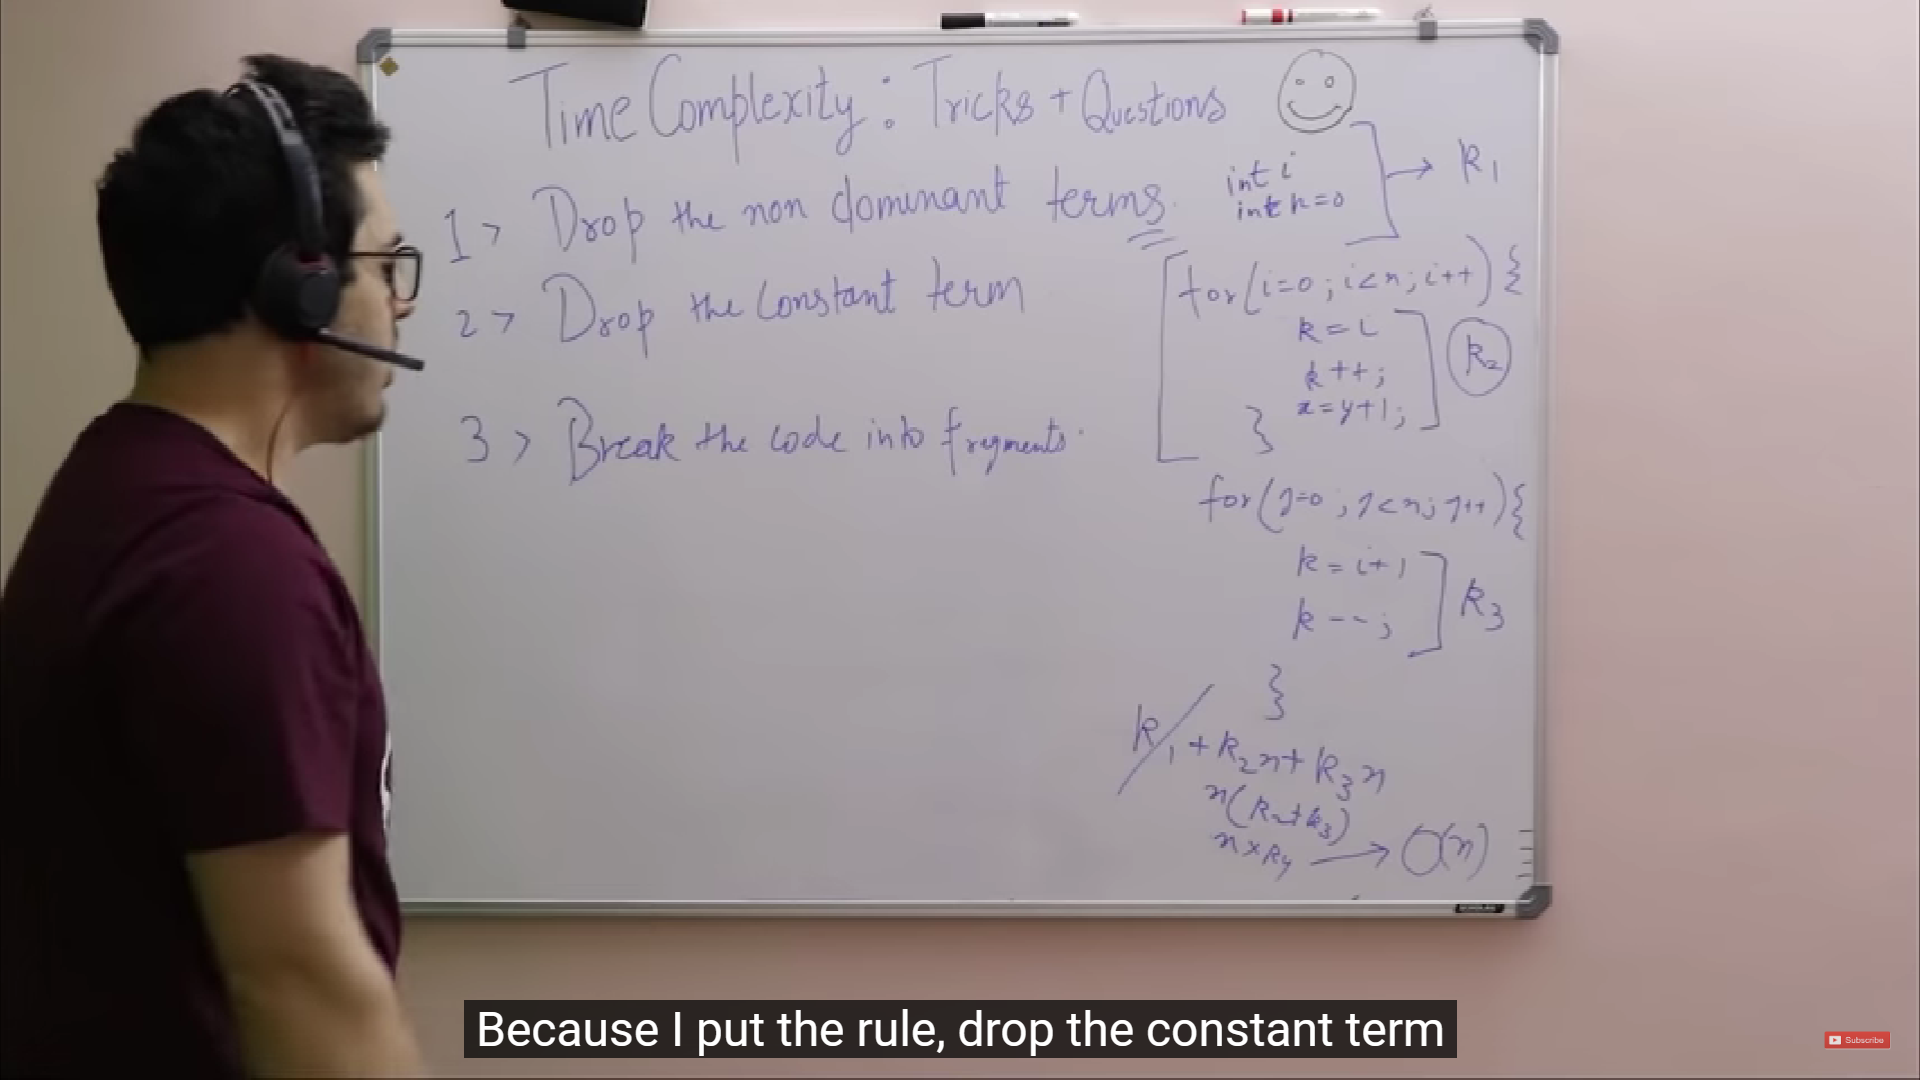 Time Complexity : Tricks + Questions
1> Drop the non dominant terms.
2> Drop the Constant term
3> Break the code into fragments.
int i
int k=0
→ k1
for(i=0; i<n; i++){
k = i
k++;
x=y+1;
}
k2
for(j=0; j<n; j++){
k = i+1
k--;
}
k3
k1 + k2n + k3n
n(k2+k3)
n×k4 → O(n)
Because I put the rule, drop the constant term
Subscribe